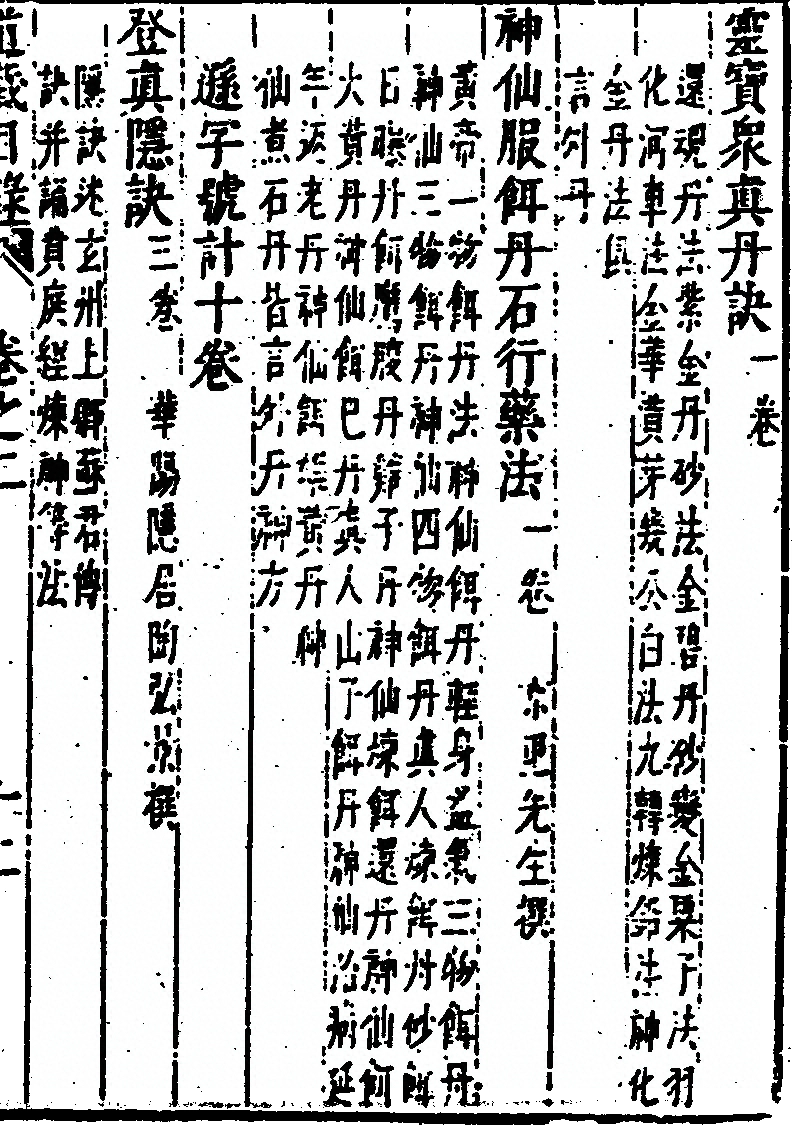 靈寶衆真丹訣一卷
還魂丹法紫金丹砂法金碧丹砂變金粟子法羽
化河車法金華黄芽法㡬公白法九轉煉鉛法神化
金丹法具
言外丹
神仙服餌丹石行藥法一卷 京里先生撰
黄帝一物餌丹法神仙餌丹輕身益氣三物餌丹
神仙三物餌丹神仙四物餌丹真人煉餌丹砂餌
日曝丹餌鴈腹丹雞子丹神仙煉餌還丹神仙餌
大黄丹神仙餌巴丹真人山丫餌丹神仙治病延
年返老丹神仙餌 黄丹 
仙煮石丹皆言外丹 方
遜字號計十卷
登真隱訣三卷 華陽隱居陶弘景撰
隱訣述玄州上卿蘇君傳
訣并誦黄庭經煉神等法
道藏目錄 卷之二
十二